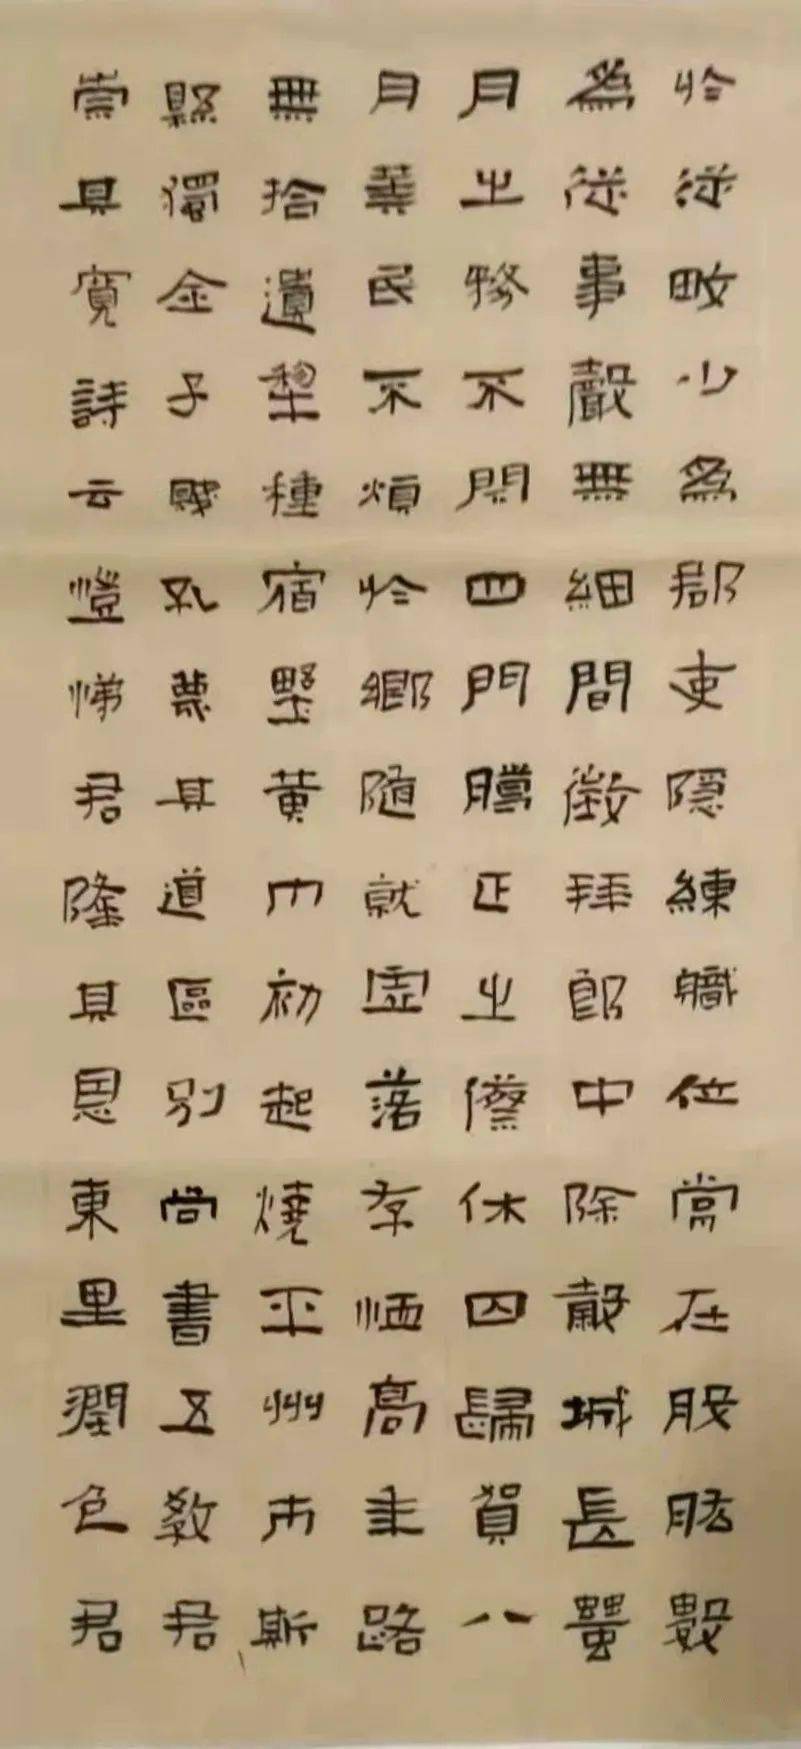 於從畋少為郡吏隱練職位常在股肱數
為從事聲無細聞徵拜郎中除穀城長蠶
月之務不閉四門臘正之僚休囚歸賀八
月筭民不煩於鄉隨就虛落存恤高年路
無拾遺犁種宿野黃巾初起燒平城市斯
縣獨全子賤孔蔑其道區別尚書五教君
崇其寬詩云愷悌君隆其恩東里潤色君